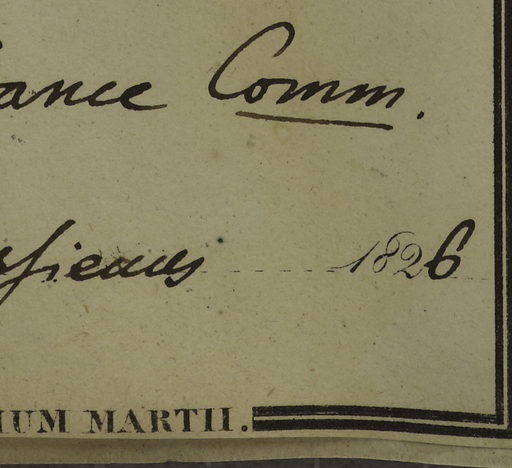 ance Comm.
1826
IUM MARTII.